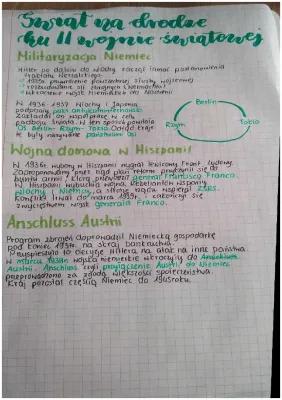 Świat na drodze
ku II wojnie światowej
Militaryzacja Niemiec
Hitler po dojściu do władzy zaczął łamać postanowienia
traktatu wersalskiego.
powszechnej służby wojskowej
wkroczenie wojsk niemieckich do Nadrenii
W 1936 1937 Włochy i Japonia
podpisały pakt antykominternowski.
Zakładał on współpracę w celu
podboju świata. W ten sposób powstała
Oś Berlin-Rzym-Tokio. Odtąd kraje
te były nazywane państwami Osi
Berlin
Rzym
Tokio
Wojna domowa w Hiszpanii
W 1936r. wybory w Hiszpanii wygrał lewicowy Front Ludowy.
Zaproponowany przez rząd plan reform przyczynił się do
buntu armii, którą przewodził generał Francisco Franco.
W Hiszpanii wybuchła wojna. Rebeliantów wsparły
Włochy i Niemcy, a stronę rządu wspierał ZSRS.
Konflikt trwał do marca 1939r. i zakończył się
zwycięstwem wojsk generała Franco.
Anschluss Austrii
Program zbrojeń doprowadził Niemiecką gospodarkę
pod koniec 1937r. na skraj bankructwa.
Przyspieszyło to decyzję Hitlera na atak na inne państwa.
W marcu 1938r. wojska niemieckie wkroczyły do
Austrii. Anschluss czyli przyłączenie Austrii do Niemiec
przeprowadzono za zgodą większości społeczeństwa.
Kraj pozostał częścią Niemiec do 1945roku.